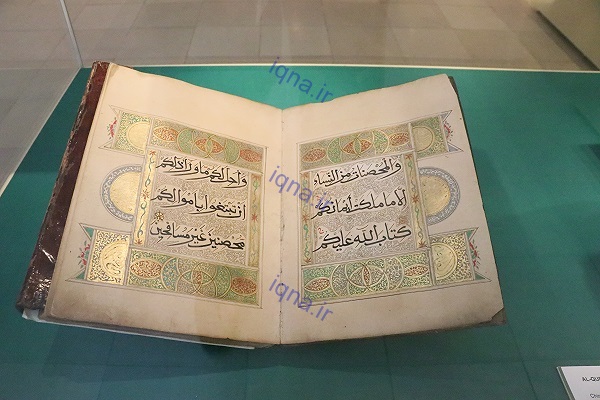 والمحصنات من النساء
الا ما ملكت ايمانكم
كتاب الله عليكم
واحل لكم ما وراء ذلكم
ان تبتغوا باموالكم
محصنين غير مسافحين
iqna.ir
iqna.ir
iqna.ir
AL-QUR